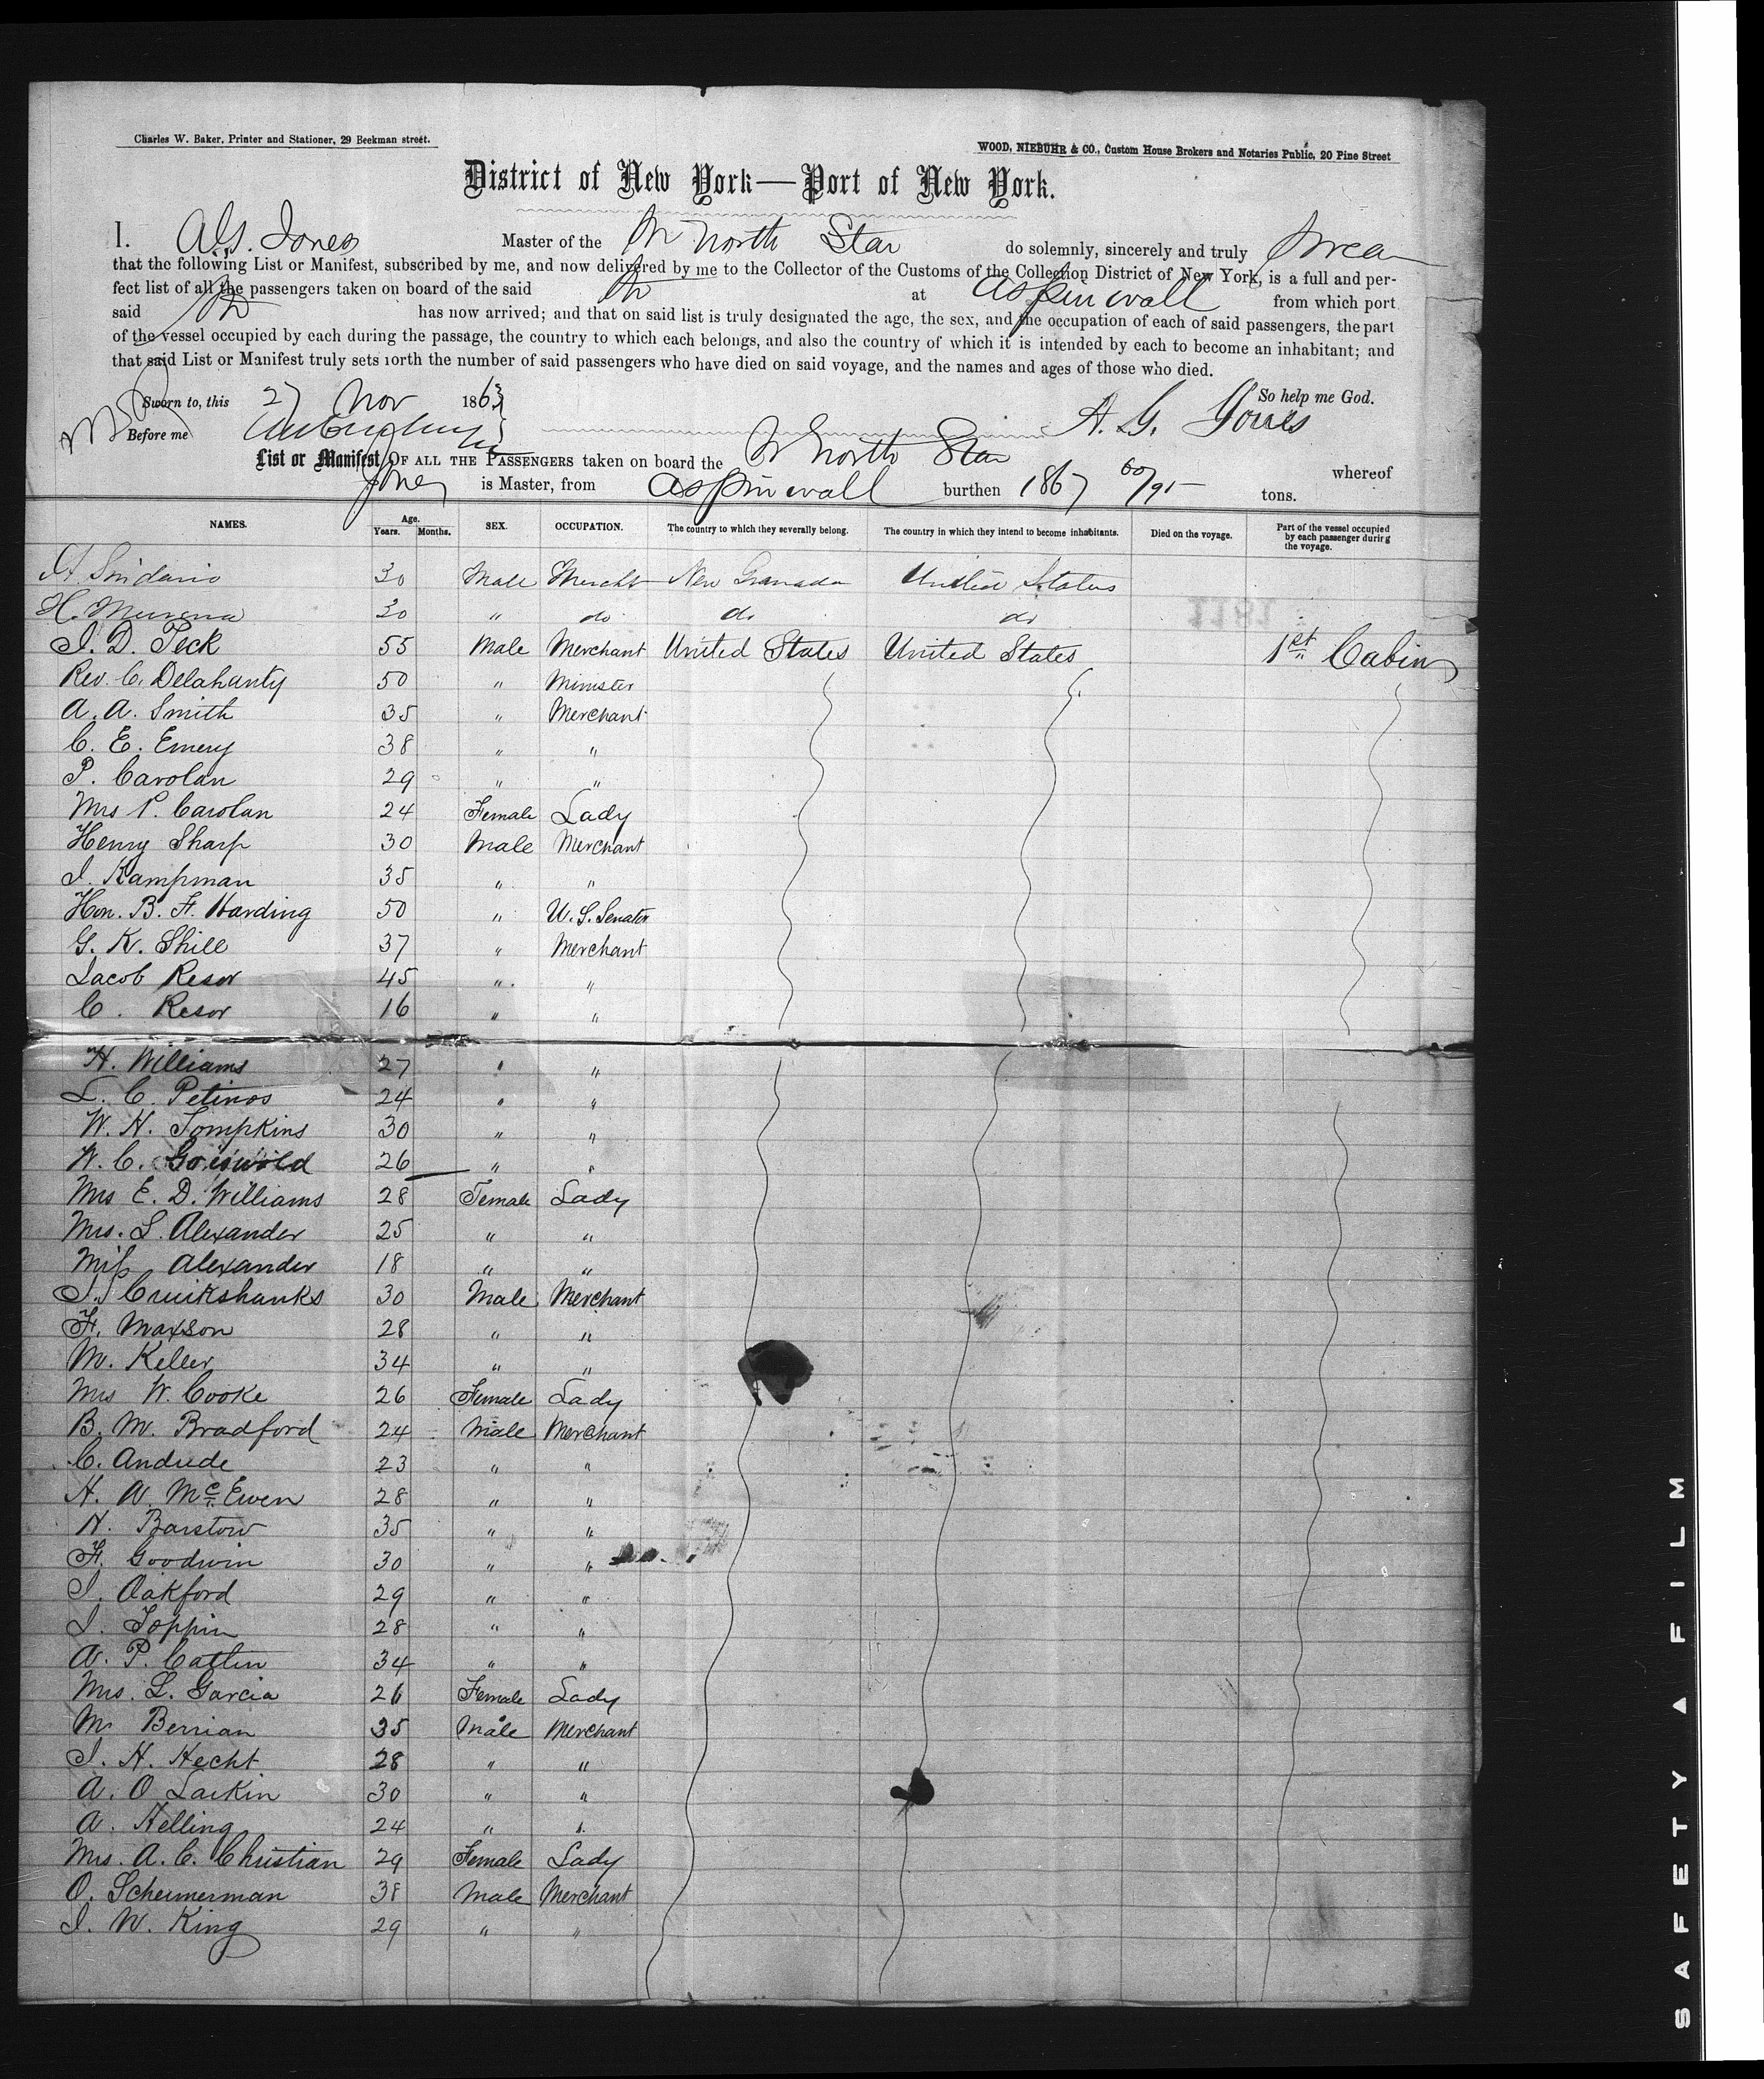 Charles W. Baker, Printer and Stationer, 29 Beekman street.
WOOD, NIEBUHR & CO., Custom House Brokers and Notaries Public, 20 Pine Street
District of New York—Port of New York.
I. A. G. Jones Master of the Str North Star do solemnly, sincerely and truly swear
that the following List or Manifest, subscribed by me, and now delivered by me to the Collector of the Customs of the Collection District of New York, is a full and per-
fect list of all the passengers taken on board of the said Str at Aspinwall from which port
said Str has now arrived; and that on said list is truly designated the age, the sex, and the occupation of each of said passengers, the part
of the vessel occupied by each during the passage, the country to which each belongs, and also the country of which it is intended by each to become an inhabitant; and
that said List or Manifest truly sets forth the number of said passengers who have died on said voyage, and the names and ages of those who died.
Sworn to, this 27 Nov 1863 So help me God.
Before me A. G. Jones
List or Manifest OF ALL THE PASSENGERS taken on board the Str North Star whereof
Jones is Master, from Aspinwall burthen 1867 60/95 tons.
NAMES. Age. Years. Months. SEX. OCCUPATION. The country to which they severally belong. The country in which they intend to become inhabitants. Died on the voyage. Part of the vessel occupied by each passenger during the voyage.
30 Male Mercht New Granada United States
H. 30 " do do do
J. D. Peck 55 Male Merchant United States United States 1st Cabin
Rev. C. Delahanty 50 " Minister
A. A. Smith 35 " Merchant
C. E. Emery 38 " "
P. Carolan 29 " "
Mrs P. Carolan 24 Female Lady
Henry Sharp 30 Male Merchant
J. Kampman 35 " "
Hon. B. F. Harding 50 " U.S. Senator
G. K. Shill 37 " Merchant
Jacob Resor 45 " "
C. Resor 16 " "
H. Williams 27 " "
L. C. Petinos 24 " "
W. H. Tompkins 30 " "
W. C. Griswold 26 " "
Mrs E. D. Williams 28 Female Lady
Mrs. L. Alexander 25 " "
Miss Alexander 18 " "
J. Cruikshanks 30 Male Merchant
F. Maxson 28 " "
M. Keller 34 " "
Mrs W. Cooke 26 Female Lady
B. M. Bradford 24 Male Merchant
C. Andude 23 " "
H. W. McEwen 28 " "
H. Barstow 35 " "
F. Goodwin 30 " "
J. Oakford 29 " "
J. Toppin 28 " "
A. P. Catlin 34 " "
Mrs. L. Garcia 26 Female Lady
M. Berrian 35 Male Merchant
J. H. Hecht 28 " "
A. O Larkin 30 " "
A. Helling 24 " "
Mrs. A. C. Christian 29 Female Lady
O. Schermerman 38 Male Merchant
J. W. King 29 " "
SAFETY FILM